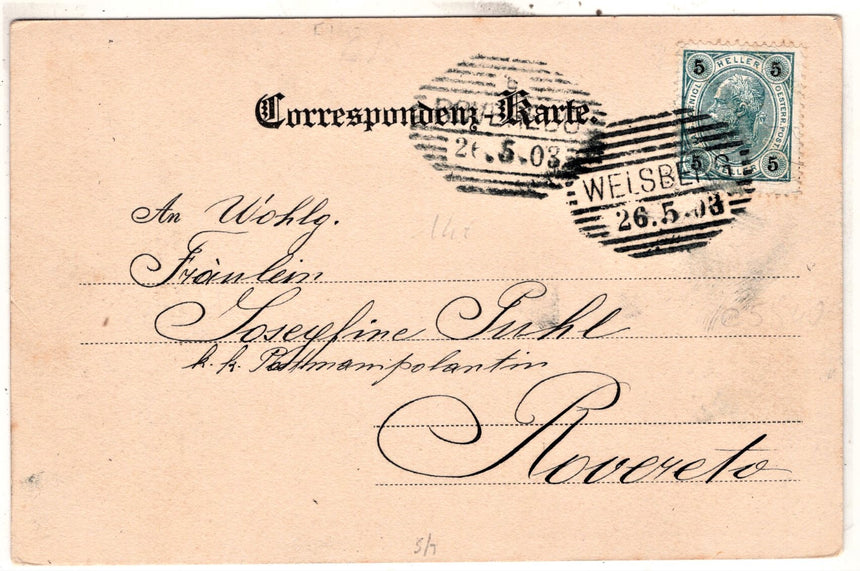 Correspondenz-Karte.
ROVEREDO
26.5.03
WELSBERG
26.5.03
5 HELLER 5
5 HELLER 5
An Wohlg.
Fräulein
Josefine Puhl
k. k. Postmanipolantin
Rovereto
5/7